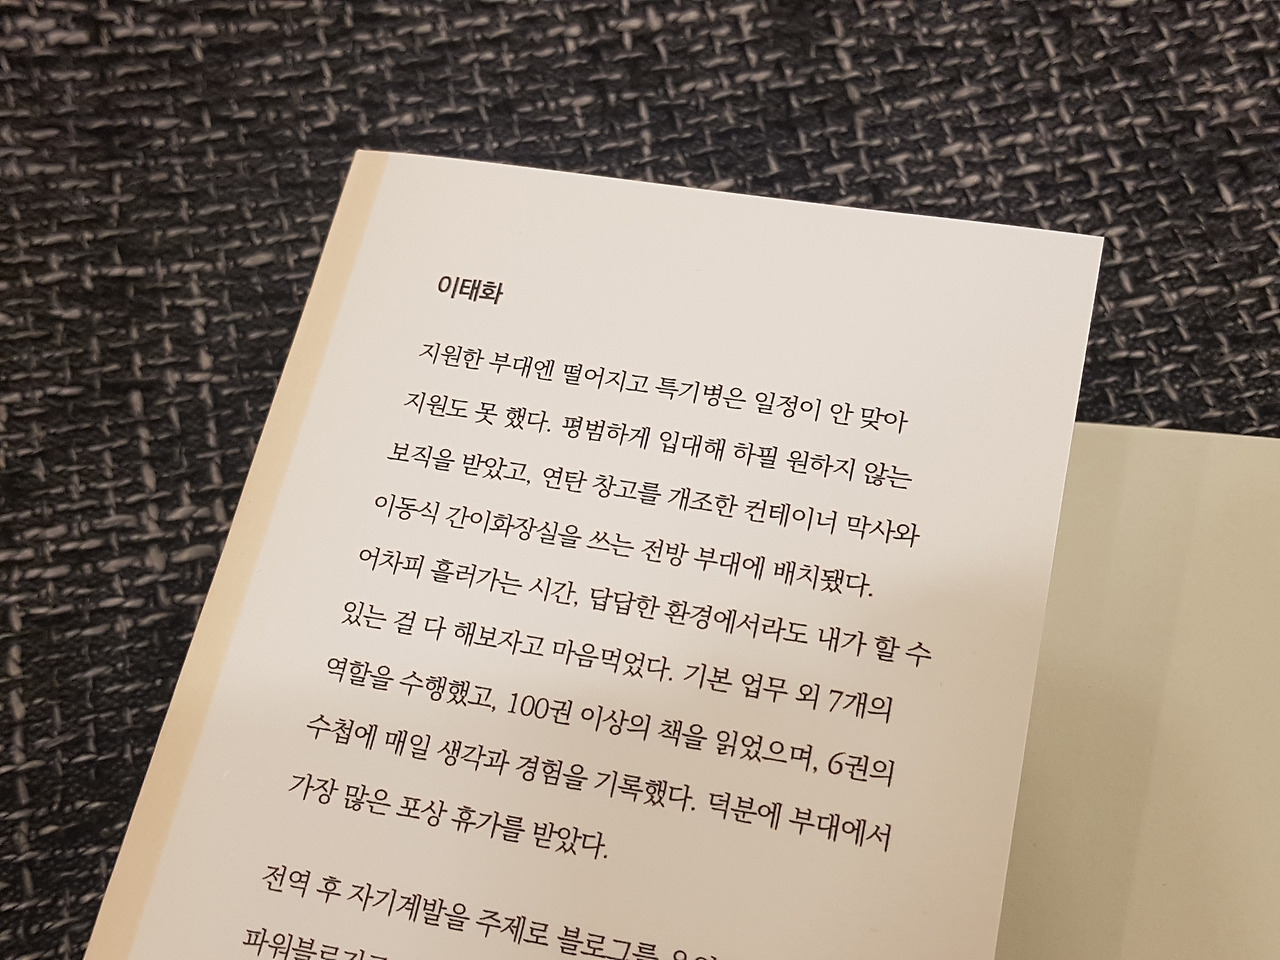 이태화
지원한 부대엔 떨어지고 특기병은 일정이 안 맞아
지원도 못 했다. 평범하게 입대해 하필 원하지 않는
보직을 받았고, 연탄 창고를 개조한 컨테이너 막사와
이동식 간이화장실을 쓰는 전방 부대에 배치됐다.
어차피 흘러가는 시간, 답답한 환경에서라도 내가 할 수
있는 걸 다 해보자고 마음먹었다. 기본 업무 외 7개의
역할을 수행했고, 100권 이상의 책을 읽었으며, 6권의
수첩에 매일 생각과 경험을 기록했다. 덕분에 부대에서
가장 많은 포상 휴가를 받았다.
전역 후 자기계발을 주제로 블로그를